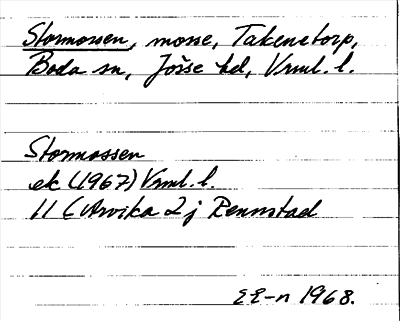 Stormossen, mosse, Takenetorp,
Boda sn, Jösse hd, Vrml. l.
Stormossen
ek (1967) Vrml. l.
11 C Arvika 2 j Rennstad
EE-n 1968.